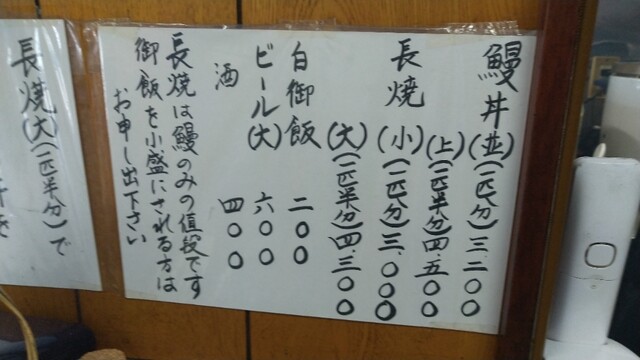 鰻丼(並)(一匹分)三.二〇〇
(上)(一匹半分)四.五〇〇
長焼(小)(一匹分)三.〇〇〇
(大)(一匹半分)四.三〇〇
白御飯 二〇〇
ビール(大) 六〇〇
酒 四〇〇
長焼は鰻のみの値段です
御飯を小盛にされる方は
お申し出下さい
長焼(大)(一匹半分)で